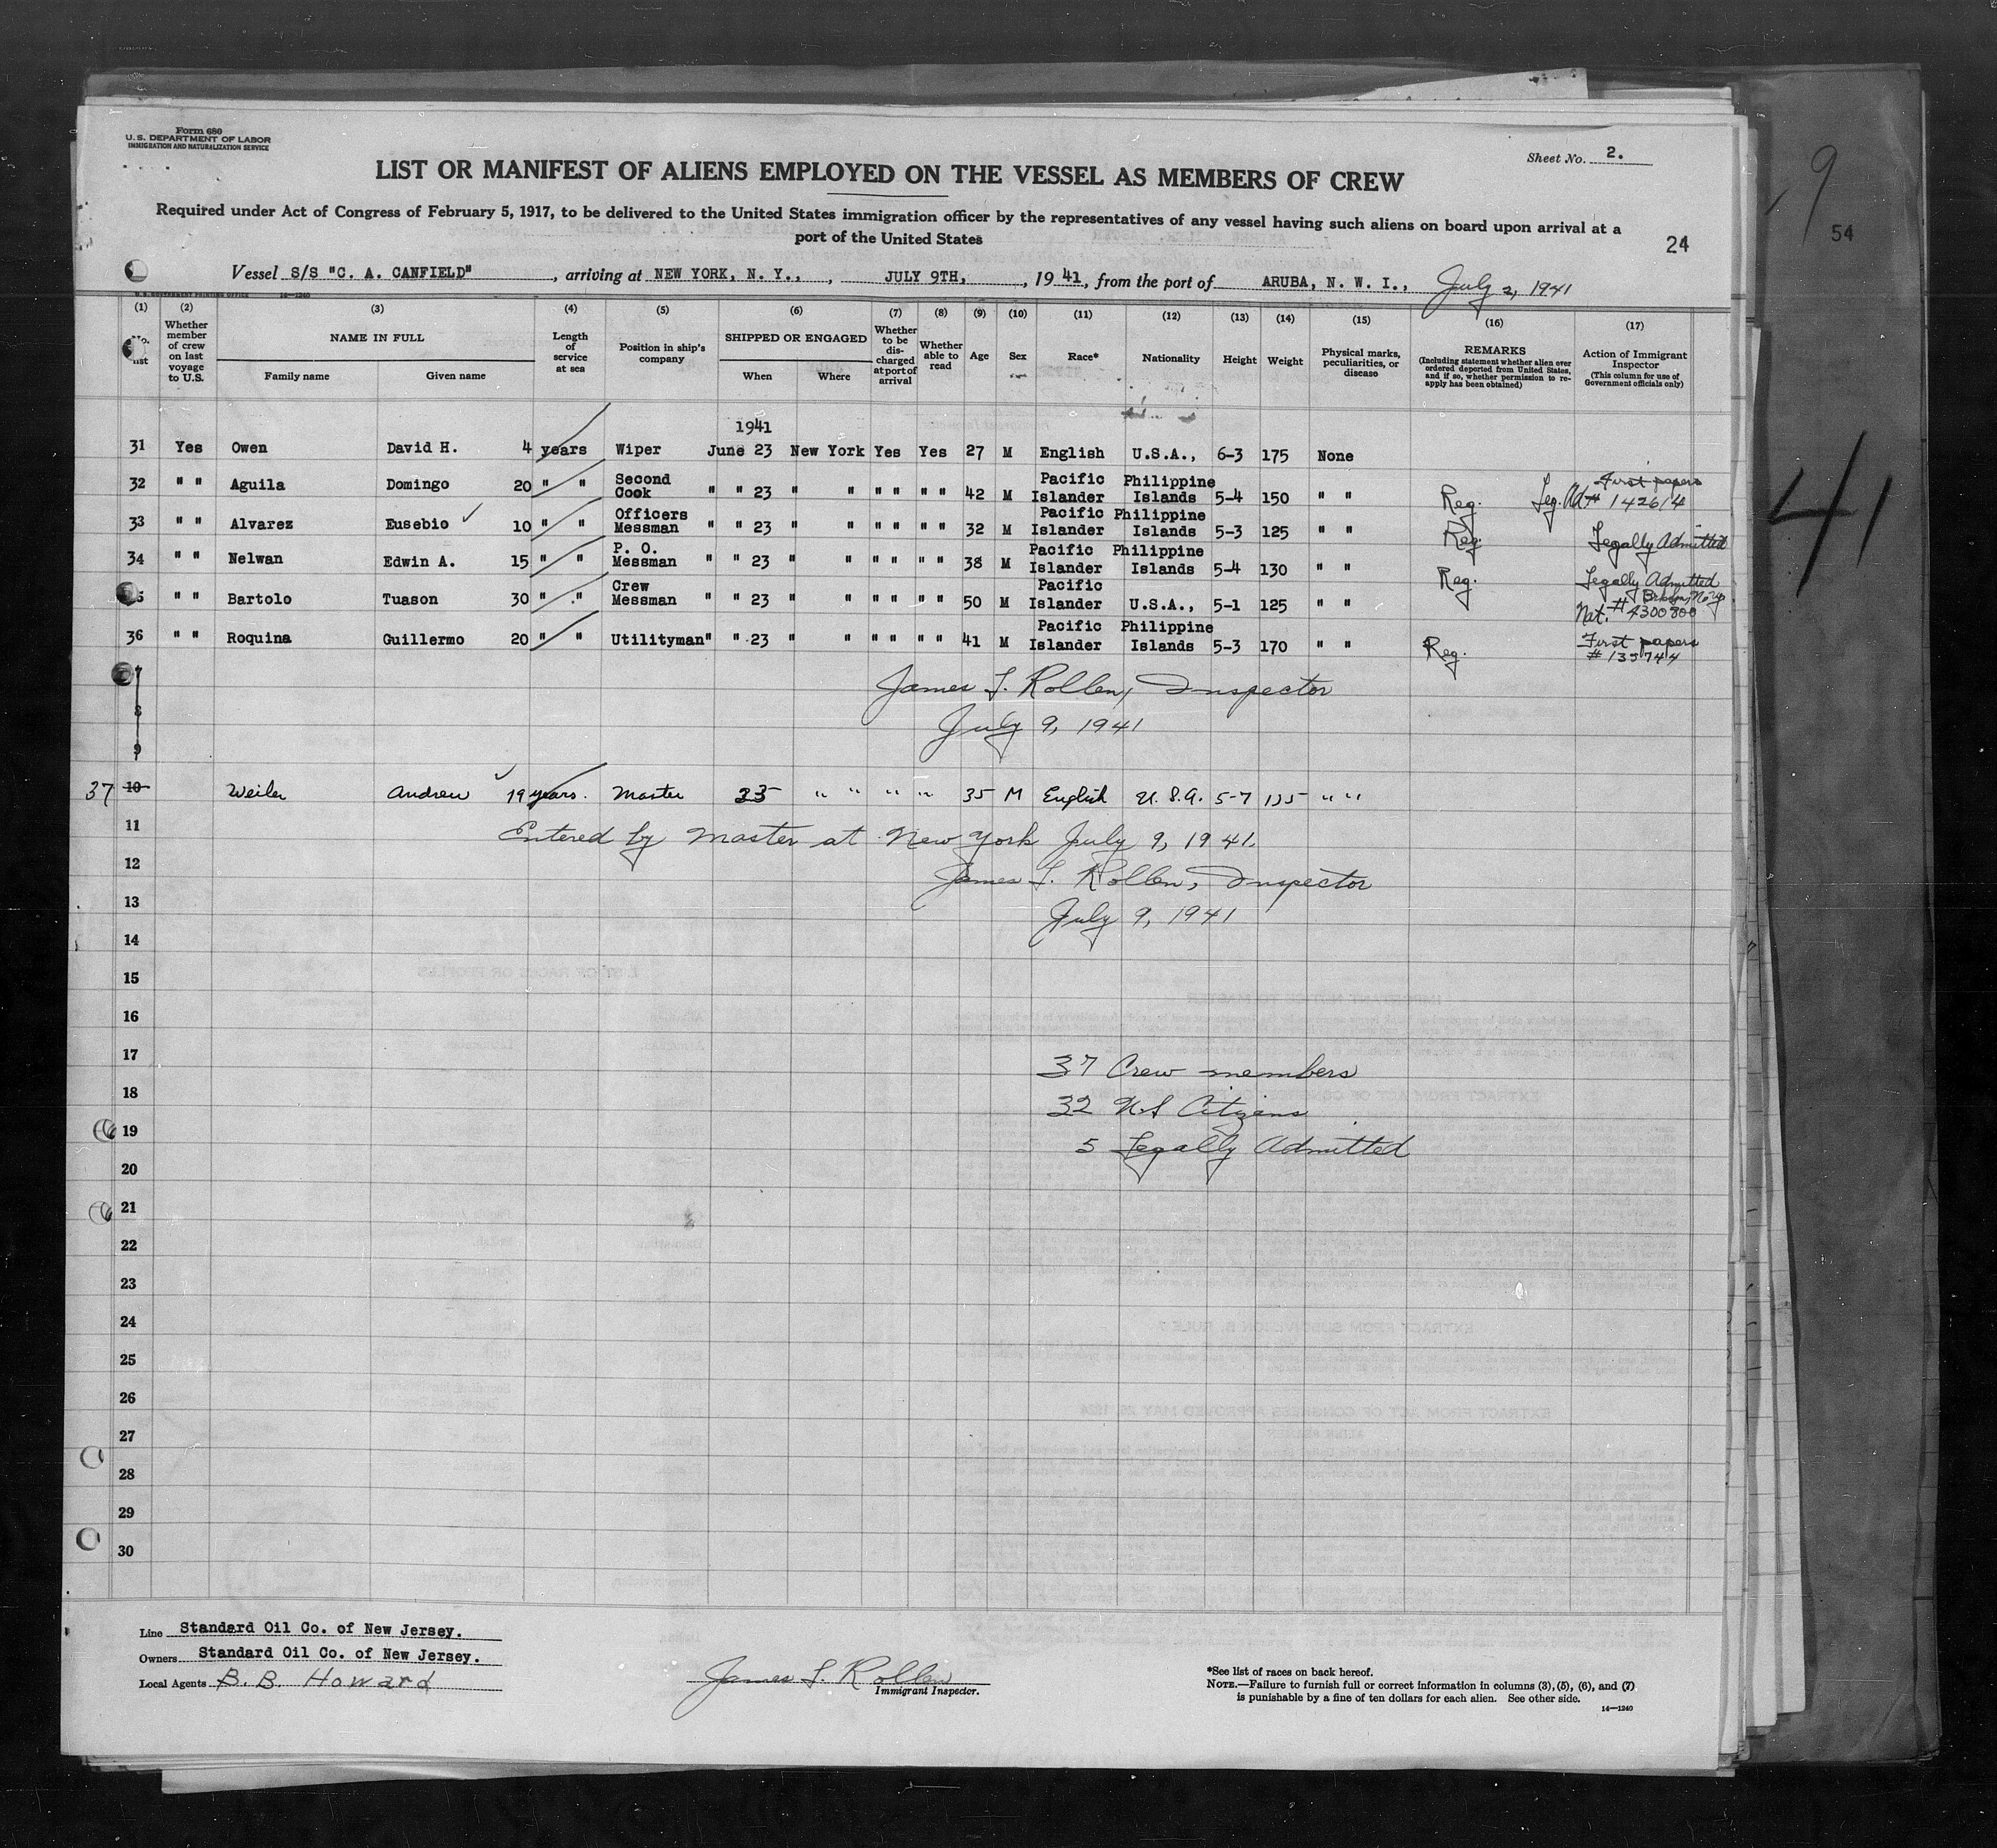 Form 680
U. S. DEPARTMENT OF LABOR
IMMIGRATION AND NATURALIZATION SERVICE
Sheet No. 2.
LIST OR MANIFEST OF ALIENS EMPLOYED ON THE VESSEL AS MEMBERS OF CREW
Required under Act of Congress of February 5, 1917, to be delivered to the United States immigration officer by the representatives of any vessel having such aliens on board upon arrival at a
port of the United States
24
9
54
41
Vessel S/S "C. A. CANFIELD", arriving at NEW YORK, N. Y., , JULY 9TH, , 1941, from the port of ARUBA, N. W. I., July 2, 1941
U. S. GOVERNMENT PRINTING OFFICE 14—1240
(1) (2) (3) (4) (5) (6) (7) (8) (9) (10) (11) (12) (13) (14) (15) (16) (17)
No. list
Whether member of crew on last voyage to U.S.
NAME IN FULL
Family name Given name
Length of service at sea
Position in ship's company
SHIPPED OR ENGAGED
When Where
Whether to be discharged at port of arrival
Whether able to read
Age
Sex
Race*
Nationality
Height
Weight
Physical marks, peculiarities, or disease
REMARKS
(Including statement whether alien ever ordered deported from United States, and if so, whether permission to reapply has been obtained)
Action of Immigrant Inspector
(This column for use of Government officials only)
1941
31 Yes Owen David H. 4 years Wiper June 23 New York Yes Yes 27 M English U.S.A., 6-3 175 None
32 " " Aguila Domingo 20 " " Second Cook " " 23 " " " " " " 42 M Pacific Islander Philippine Islands 5-4 150 " " Reg. First papers Leg. Ad # 142614
33 " " Alvarez Eusebio 10 " " Officers Messman " " 23 " " " " " " 32 M Pacific Islander Philippine Islands 5-3 125 " " Reg. Legally Admitted
34 " " Nelwan Edwin A. 15 " " P. O. Messman " " 23 " " " " " " 38 M Pacific Islander Philippine Islands 5-4 130 " " Reg. Legally Admitted
35 " " Bartolo Tuason 30 " " Crew Messman " " 23 " " " " " " 50 M Pacific Islander U.S.A., 5-1 125 " " Nat. # 4300800
36 " " Roquina Guillermo 20 " " Utilityman" " 23 " " " " " " 41 M Pacific Islander Philippine Islands 5-3 170 " " Reg. First papers # 135744
7
James L. Rollen, Inspector
8
July 9, 1941
9
37 10 Weiler Andrew 19 years. Master 33 " " " " 35 M English U. S. A. 5-7 135 " "
11
Entered by Master at New York July 9, 1941.
12
James L. Rollen, Inspector
13
July 9, 1941
14
15
16
17
37 Crew members
18
32 U S Citizens
19
5 Legally Admitted
20
21
22
23
24
25
26
27
28
29
30
Line Standard Oil Co. of New Jersey.
Owners Standard Oil Co. of New Jersey.
Local Agents B. B. Howard
James L. Rollen
Immigrant Inspector.
*See list of races on back hereof.
NOTE.—Failure to furnish full or correct information in columns (3), (5), (6), and (7)
is punishable by a fine of ten dollars for each alien. See other side.
14—1240